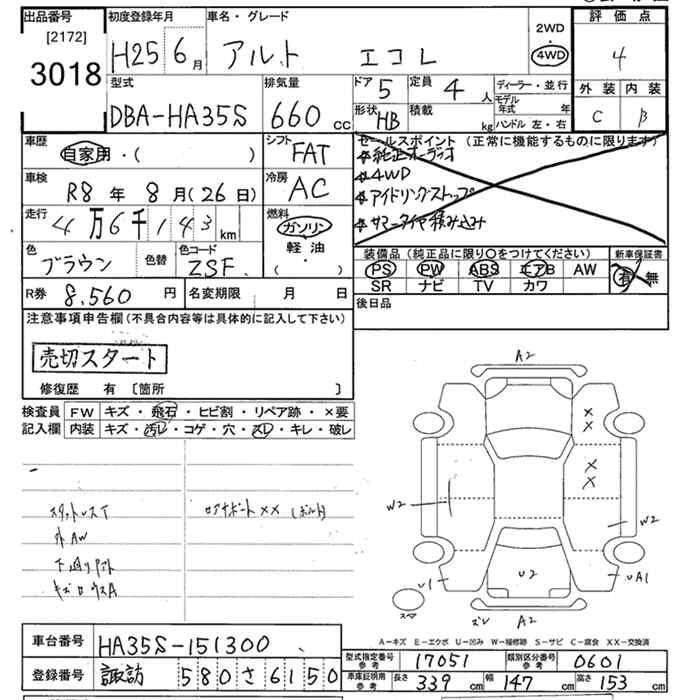 出品番号
[2172]
3018
初度登録年月
H25 6月
車名・グレード
アルト エコL
2WD
・
4WD
評価点
4
外装 内装
C B
型式
DBA-HA35S
排気量
660 cc
ドア 5
定員 4 人
形状 HB
積載 kg
ディーラー・並行
モデル年式 年
ハンドル 左・右
車歴
自家用・( )
シフト
FAT
車検
R8年 8月(26日)
冷房
AC
走行
4万6千143km
燃料
ガソリン
軽油
( ・ )
色
ブラウン
色替
色コード
ZSF
セールスポイント (正常に機能するものに限ります)
純正オーディオ
4WD
アイドリングストップ
サマータイヤ積み込み
装備品 (純正品に限り○をつけてください)
新車保証書
PS PW ABS エアB AW
有・無
SR ナビ TV カワ
R券 8,560円
名変期限 月 日
後日品
注意事項申告欄 (不具合内容等は具体的に記入して下さい)
売切スタート
修復歴 有 〔箇所 〕
検査員
記入欄
FW キズ・飛石・ヒビ割・リペア跡・×要
内装 キズ・汚レ・コゲ・穴・スレ・キレ・破レ
スタットレスT
外AW
下廻りサビ
ロアサポート××(ボルト)
A2
×
×
×
×
W2
W2
U1
U2
UA1
スペア
ズレ A2
A-キズ E-エクボ U-凹み W-補修跡 S-サビ C-腐食 XX-交換済
車台番号 HA35S-151300
登録番号 諏訪 580 さ 6150
型式指定番号 参考 17051
類別区分番号 参考 0601
車庫証明用 参考 長さ 339 cm 幅 147 cm 高さ 153 cm